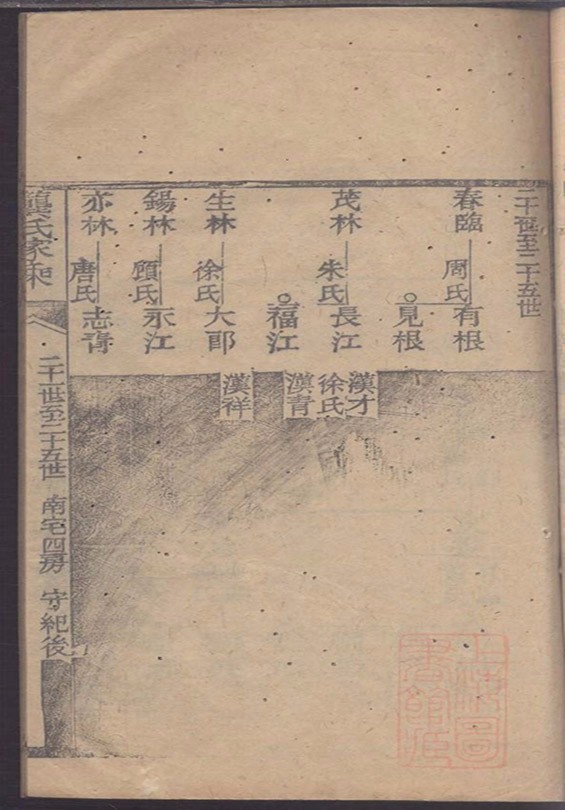 二十一世至二十五世
春臨 周氏 有根
見根
茂林 朱氏 長江
漢才
徐氏
漢青
福江
生林 徐氏 大郎
漢祥
錫林 顧氏 永江
亦林 唐氏 志青
龔氏家乘
二十一世至二十五世 南宅四房 守紀後